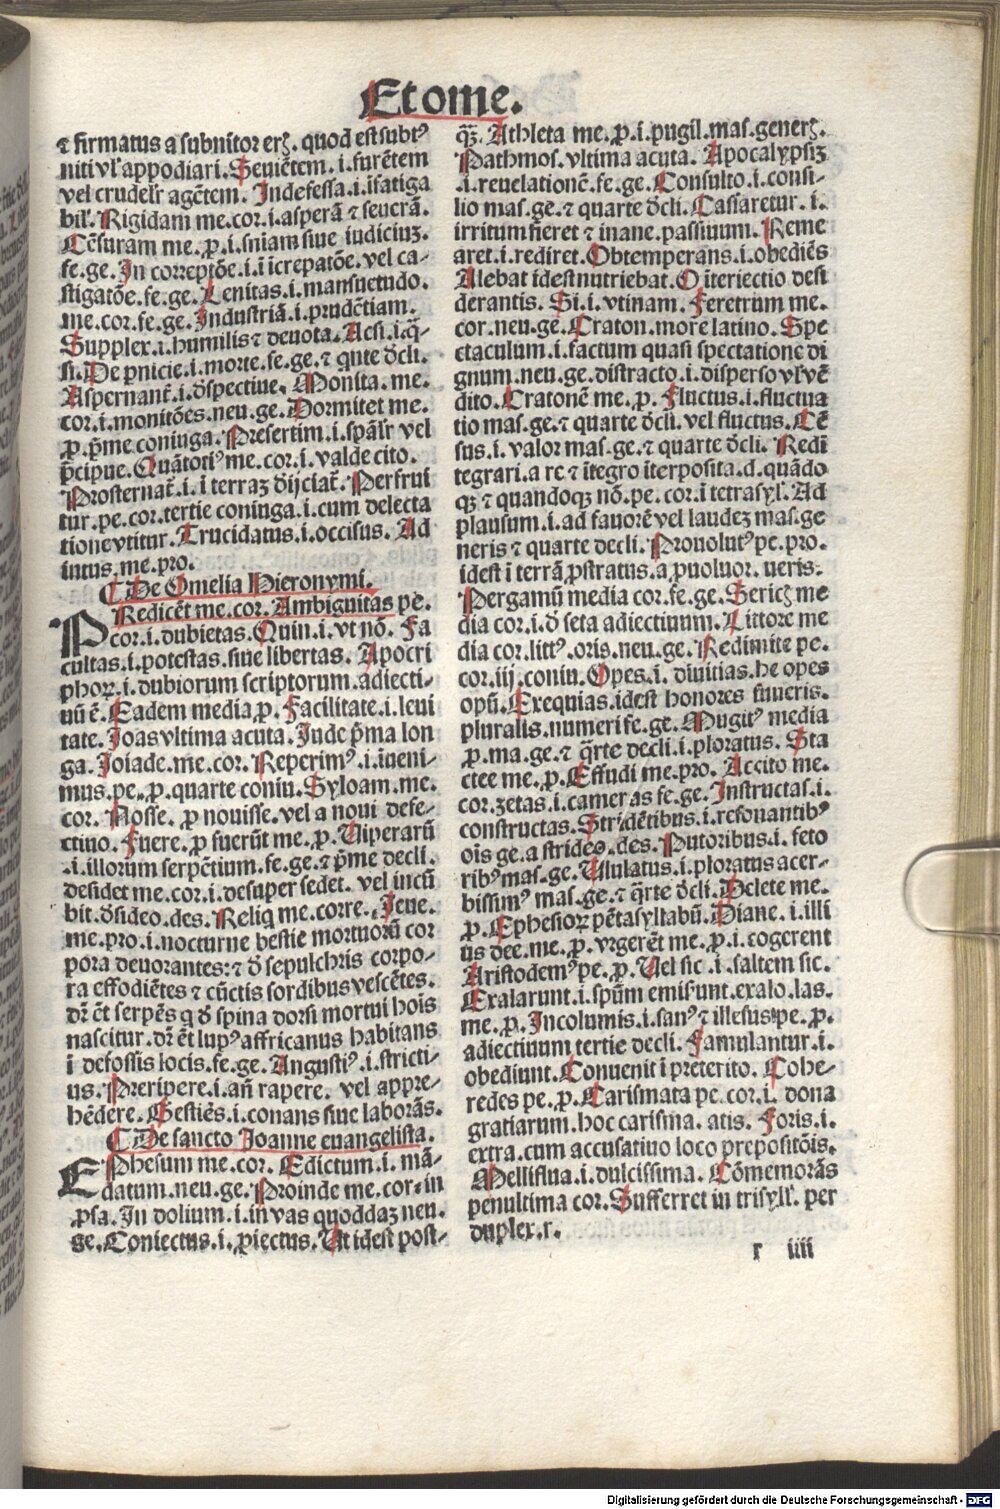 Et ome.
⁊ firmatus a subnitor erꝭ. quod est subtꝰ
niti vl' appodiari. Seuiẽtem .i. furẽtem
vel crudelr̃ agẽtem. Indefessa .i. ĩfatiga
bil'. Rigidam me. cor .i. asperã ⁊ seuerã.
Cẽsuram me. ꝓ .i. sñiam siue iudiciuꝫ.
fe. ge. In correptõe .i. ĩ ĩcrepatõe. vel ca-
stigatõe. fe. ge. Lenitas .i. mansuetudo.
me. cor. fe. ge. Industriã .i. prudẽtiam.
Supplex .i. humilis ⁊ deuota. Acsi .i. q̃-
si. De pnicie .i. morte. fe. ge. ⁊ qnte d̃cli.
Aspernant̃ .i. d̃spectiue. Monita. me.
cor .i. monitões. neu. ge. Dormitet me.
ꝓ. p̃me coniuga. Presertim .i. spãlr̃ vel
p̃cipue. Quãtoriꝰ me. cor .i. valde cito.
Prosternat̃ .i. ĩ terraꝫ d̃ijciat̃. Perfrui
tur. pe. cor. tertie coniuga .i. cum delecta
tione vtitur. Trucidatus .i. occisus. Ad
intus. me. pro.
De Omelia Hieronymi.
PRedicẽt me. cor. Ambiguitas pe.
cor .i. dubietas. Quin .i. vt nõ. Fa
cultas .i. potestas. siue libertas. Apocri
phoꝝ .i. dubiorum scriptorum. adiecti-
uũ ẽ. Eadem media ꝓ. Facilitate .i. leui
tate. Joas vltima acuta. Jude p̃ma lon
ga. Joiade. me. cor. Reperimꝰ .i. ĩueni-
mus. pe. ꝓ. quarte coniu. Syloam me.
cor. Nosse. ꝓ nouisse. vel a noui defe-
ctiuo. Fuere. ꝓ fuerũt me. ꝓ. Uiperarũ
.i. illorum serpẽtium. fe. ge. ⁊ p̃me decli.
desidet me. cor .i. desuper sedet. vel incũ
bit. d̃sideo. des. Reliq me. corre. Jeue.
me. pro .i. nocturne bestie mortuorũ cor
pora deuorantes: ⁊ d̃ sepulchris corpo-
ra effodiẽtes ⁊ cũctis sordibus vescẽtes.
dr̃ ẽt serpẽs q d̃ spina dorsi mortui hois
nascitur. dr̃ ẽt lupꝰ affricanus habitans
ĩ defossis locis. fe. ge. Angustiꝰ .i. stricti-
us. Preripere .i. añ rapere. vel appre-
hẽdere. Gestiẽs .i. conans siue laborãs.
De sancto Joanne euangelista.
EPhesum me. cor. Edictum .i. mã-
datum. neu. ge. Proinde me. cor. in
ꝓsa. In dolium .i. in vas quoddaꝫ neu.
ge. Coniectus .i. ꝓiectus. Ut idest post-
qꝫ. Athleta me. ꝓ .i. pugil. mas. generꝭ.
Pathmos. vltima acuta. Apocalypsiꝫ
.i. reuelationẽ. fe. ge. Consulto .i. consi-
lio mas. ge. ⁊ quarte d̃cli. Cassaretur .i.
irritum fieret ⁊ inane. passiuum. Reme
aret .i. rediret. Obtemperans .i. obediẽs
Alebat idest nutriebat. O ĩteriectio desi
derantis. Si .i. vtinam. Feretrum me.
cor. neu. ge. Craton. more latino. Spe
ctaculum .i. factum quasi spectatione di
gnum. neu. ge. distracto .i. disperso vl' vẽ
dito. Cratonẽ me. ꝓ. Fluctus .i. fluctua
tio mas. ge. ⁊ quarte d̃cli. vel fluctus. Cẽ
sus .i. valor mas. ge. ⁊ quarte d̃cli. Redĩ
tegrari. a re. ⁊ ĩtegro ĩterposita. d. quãdo
qꝫ ⁊ quandoqꝫ nõ. pe. cor. ĩ tetrasyl'. Ad
plausum .i. ad fauorẽ vel laudeꝫ mas. ge
neris ⁊ quarte decli. Prouolutꝰ pe. pro.
idest ĩ terrã ꝓstratus. a ꝓuoluor. ueris.
Pergamũ media cor. fe. ge. Sericꝭ me
dia cor .i. d̃ seta adiectiuum. Littore me
dia cor. littꝰ. oris. neu. ge. Redimite pe.
cor. iij. coniu. Opes .i. diuitias. he opes
opũ. Exequias. idest honores funeris.
pluralis. numeri fe. ge. Mugitꝰ media
ꝓ. ma. ge. ⁊ q̃rte decli .i. ploratus. Sta
ctee me. ꝓ. Effudi me. pro. Accito me.
cor. zetas .i. cameras fe. ge. Instructas .i.
constructas. Stridẽtibus .i. resonantibꝰ
oĩs ge. a strideo. des. Putoribus .i. feto
ribꝰ mas. ge. Ululatus .i. ploratus acer-
bissimꝰ mas. ge. ⁊ q̃rte d̃cli. Delete me.
ꝓ. Ephesioꝝ pẽtasyllabũ. Diane .i. illi
us dee. me. ꝓ. vrgerẽt me. ꝓ .i. cogerent
Aristodemꝰ pe. ꝓ. Uel sic .i. saltem sic.
Exalarunt .i. spũm emiserunt. exalo. las.
me. ꝓ. Incolumis .i. sanꝰ ⁊ illesus pe. ꝓ.
adiectiuum tertie decli. Famulantur .i.
obediunt. Conuenit ĩ preterito. Cohe-
redes pe. ꝓ. Carismata pe. cor .i. dona
gratiarum. hoc carisma. atis. Foris .i.
extra. cum accusatiuo loco prepositõis.
Melliflua .i. dulcissima. Cõmemorãs
penultima cor. Sufferret in trisyll'. per
duplex. r.
r iiii
Digitalisierung gefördert durch die Deutsche Forschungsgemeinschaft - DFG